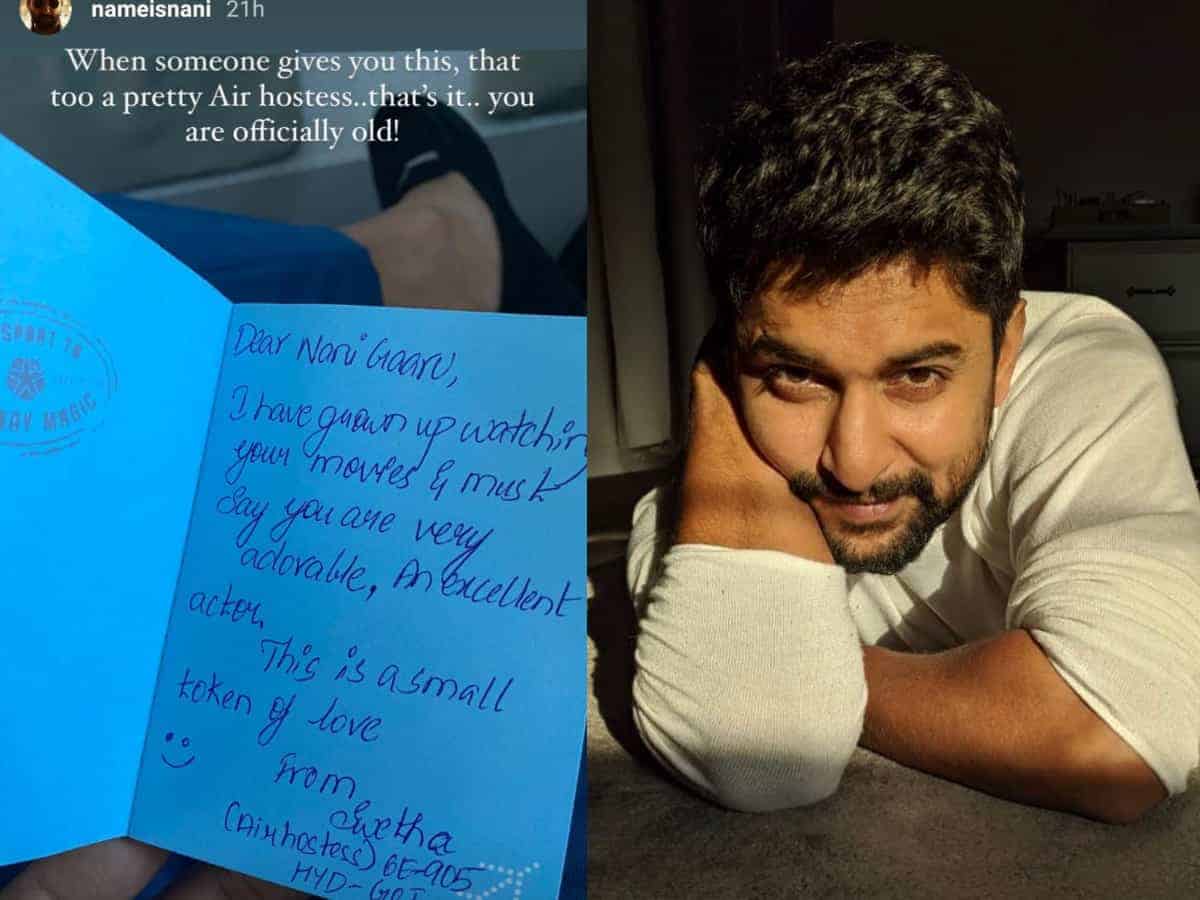 nameisnani 21h
When someone gives you this, that
too a pretty Air hostess..that's it.. you
are officially old!
SPORT TO
DAY MAGIC
Dear Nani Gaaru,
I have grown up watching
your movies & must
Say you are very
adorable, An excellent
actor
This is a small
token of love
From
Swetha
(Airhostess) 6E-905
HYD-GOI